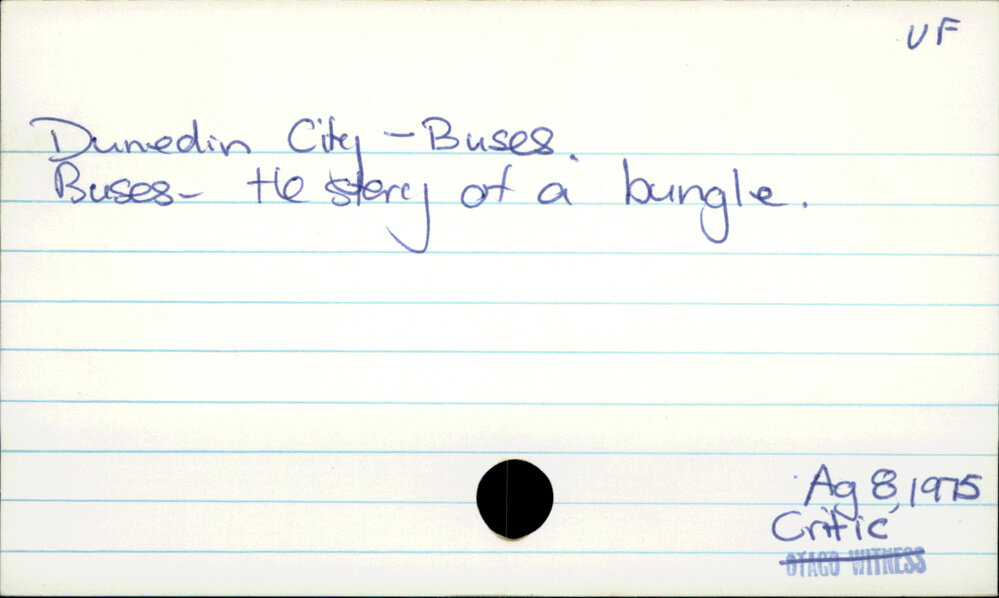 UF
Dunedin City - Buses.
Buses - the story of a bungle.
Ag 8, 1975
Critic
OTAGO WITNESS